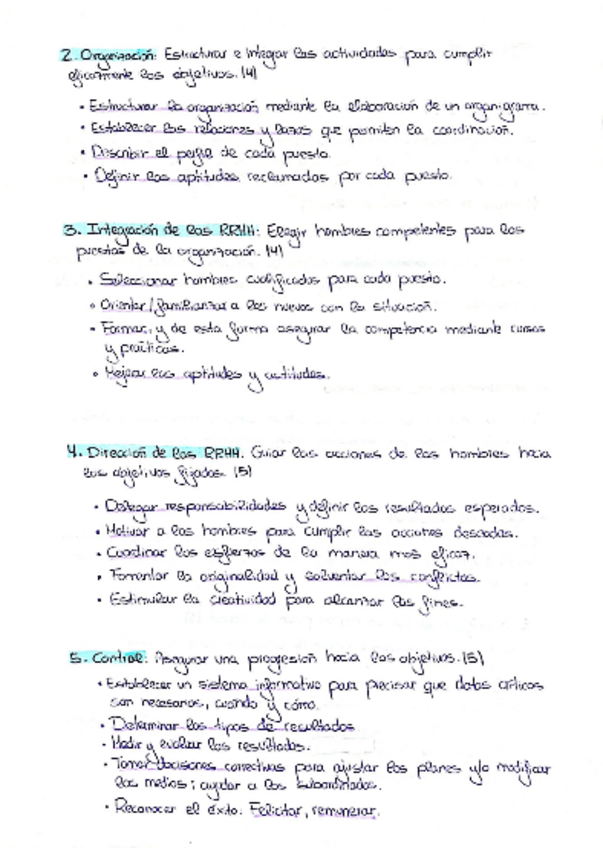 2. Organización: Estructurar e integrar las actividades para cumplir
eficazmente los objetivos. (4)
• Estructurar la organización mediante la elaboración de un organigrama.
• Establecer las relaciones y lazos que permiten la coordinación.
• Describir el perfil de cada puesto.
• Definir las aptitudes reclamadas por cada puesto.
3. Integración de las RRHH: Elegir hombres competentes para los
puestos de la organización. (4)
• Seleccionar hombres cualificados para cada puesto.
• Orientar/familiarizar a los nuevos con la situación.
• Formar, y de esta forma asegurar la competencia mediante cursos
y prácticas.
• Mejorar las aptitudes y actitudes.
4. Dirección de las RRHH. Guiar las acciones de los hombres hacia
los objetivos fijados. (5)
• Delegar responsabilidades y definir los resultados esperados.
• Motivar a los hombres para cumplir las acciones deseadas.
• Coordinar los esfuerzos de la manera más eficaz.
• Fomentar la originalidad y solventar los conflictos.
• Estimular la creatividad para alcanzar los fines.
5. Control: Asegurar una progresión hacia los objetivos. (5)
• Establecer un sistema informativo para precisar que datos críticos
son necesarios, cuando y cómo.
• Determinar los tipos de resultados
• Medir y evaluar los resultados.
• Tomar decisiones correctivas para ajustar los planes y/o modificar
los medios; ayudar a los subordinados.
• Reconocer el éxito. Felicitar, remunerar.